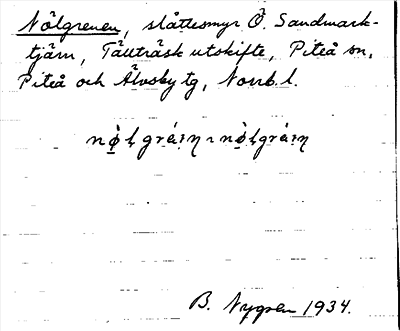 Nölgrenen, slåttesmyr Ö. Sandmark-
tjärn, Tällträsk utskifte, Piteå sn,
Piteå och Älvsby tg, Norrb. l.
B. Nygren 1934.